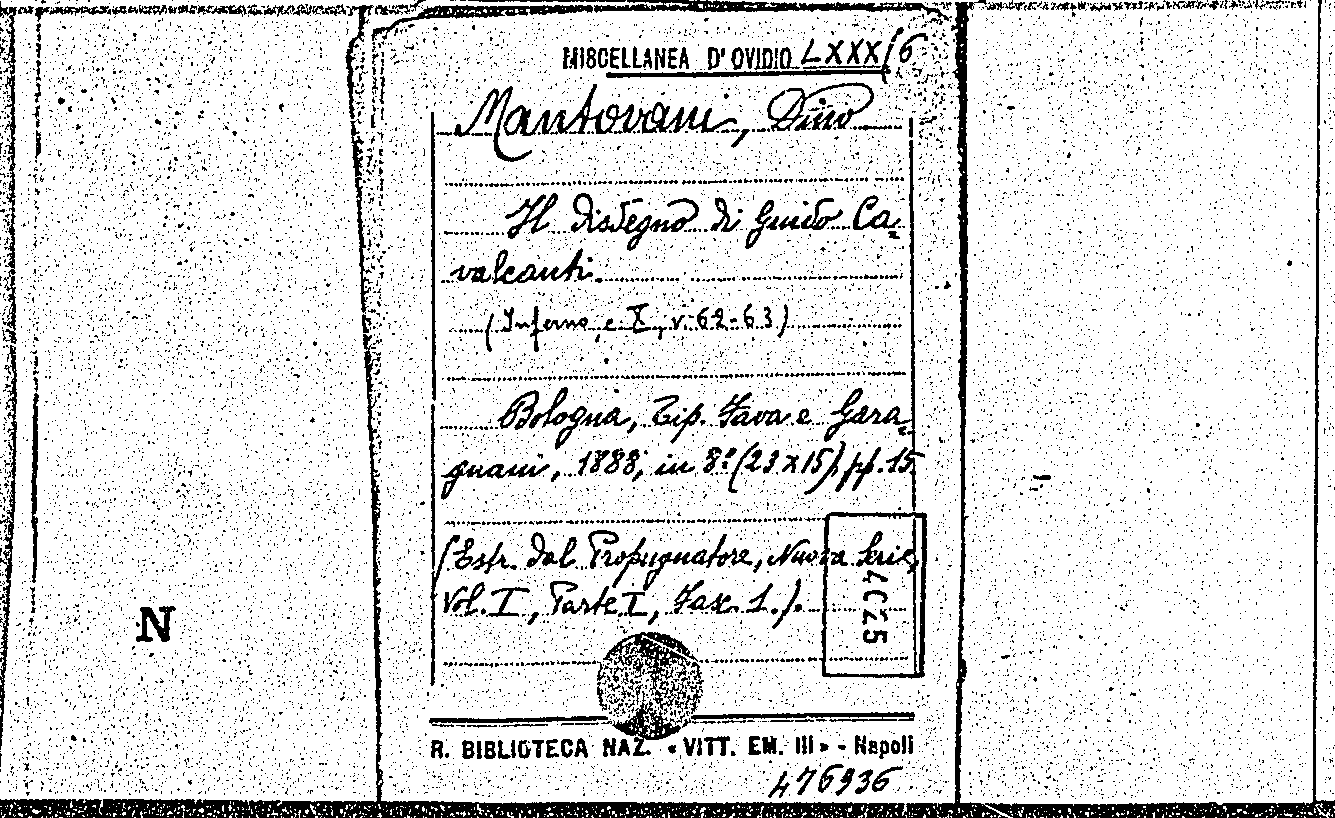 MISCELLANEA D'OVIDIO LXXX/6
Mantovani, Dino
Il disdegno di Guido Ca=
valcanti.
(Inferno, c. X, v. 62-63)
Bologna, Tip. Fava e Gara=
gnani, 1888, in 8º (23x15), pp. 15
(Estr. dal Propugnatore, Nuova Serie,
Vol. I, Parte I, Fasc. 1.).
4C25
N
R. BIBLIOTECA NAZ. « VITT. EM. III » - Napoli
476936